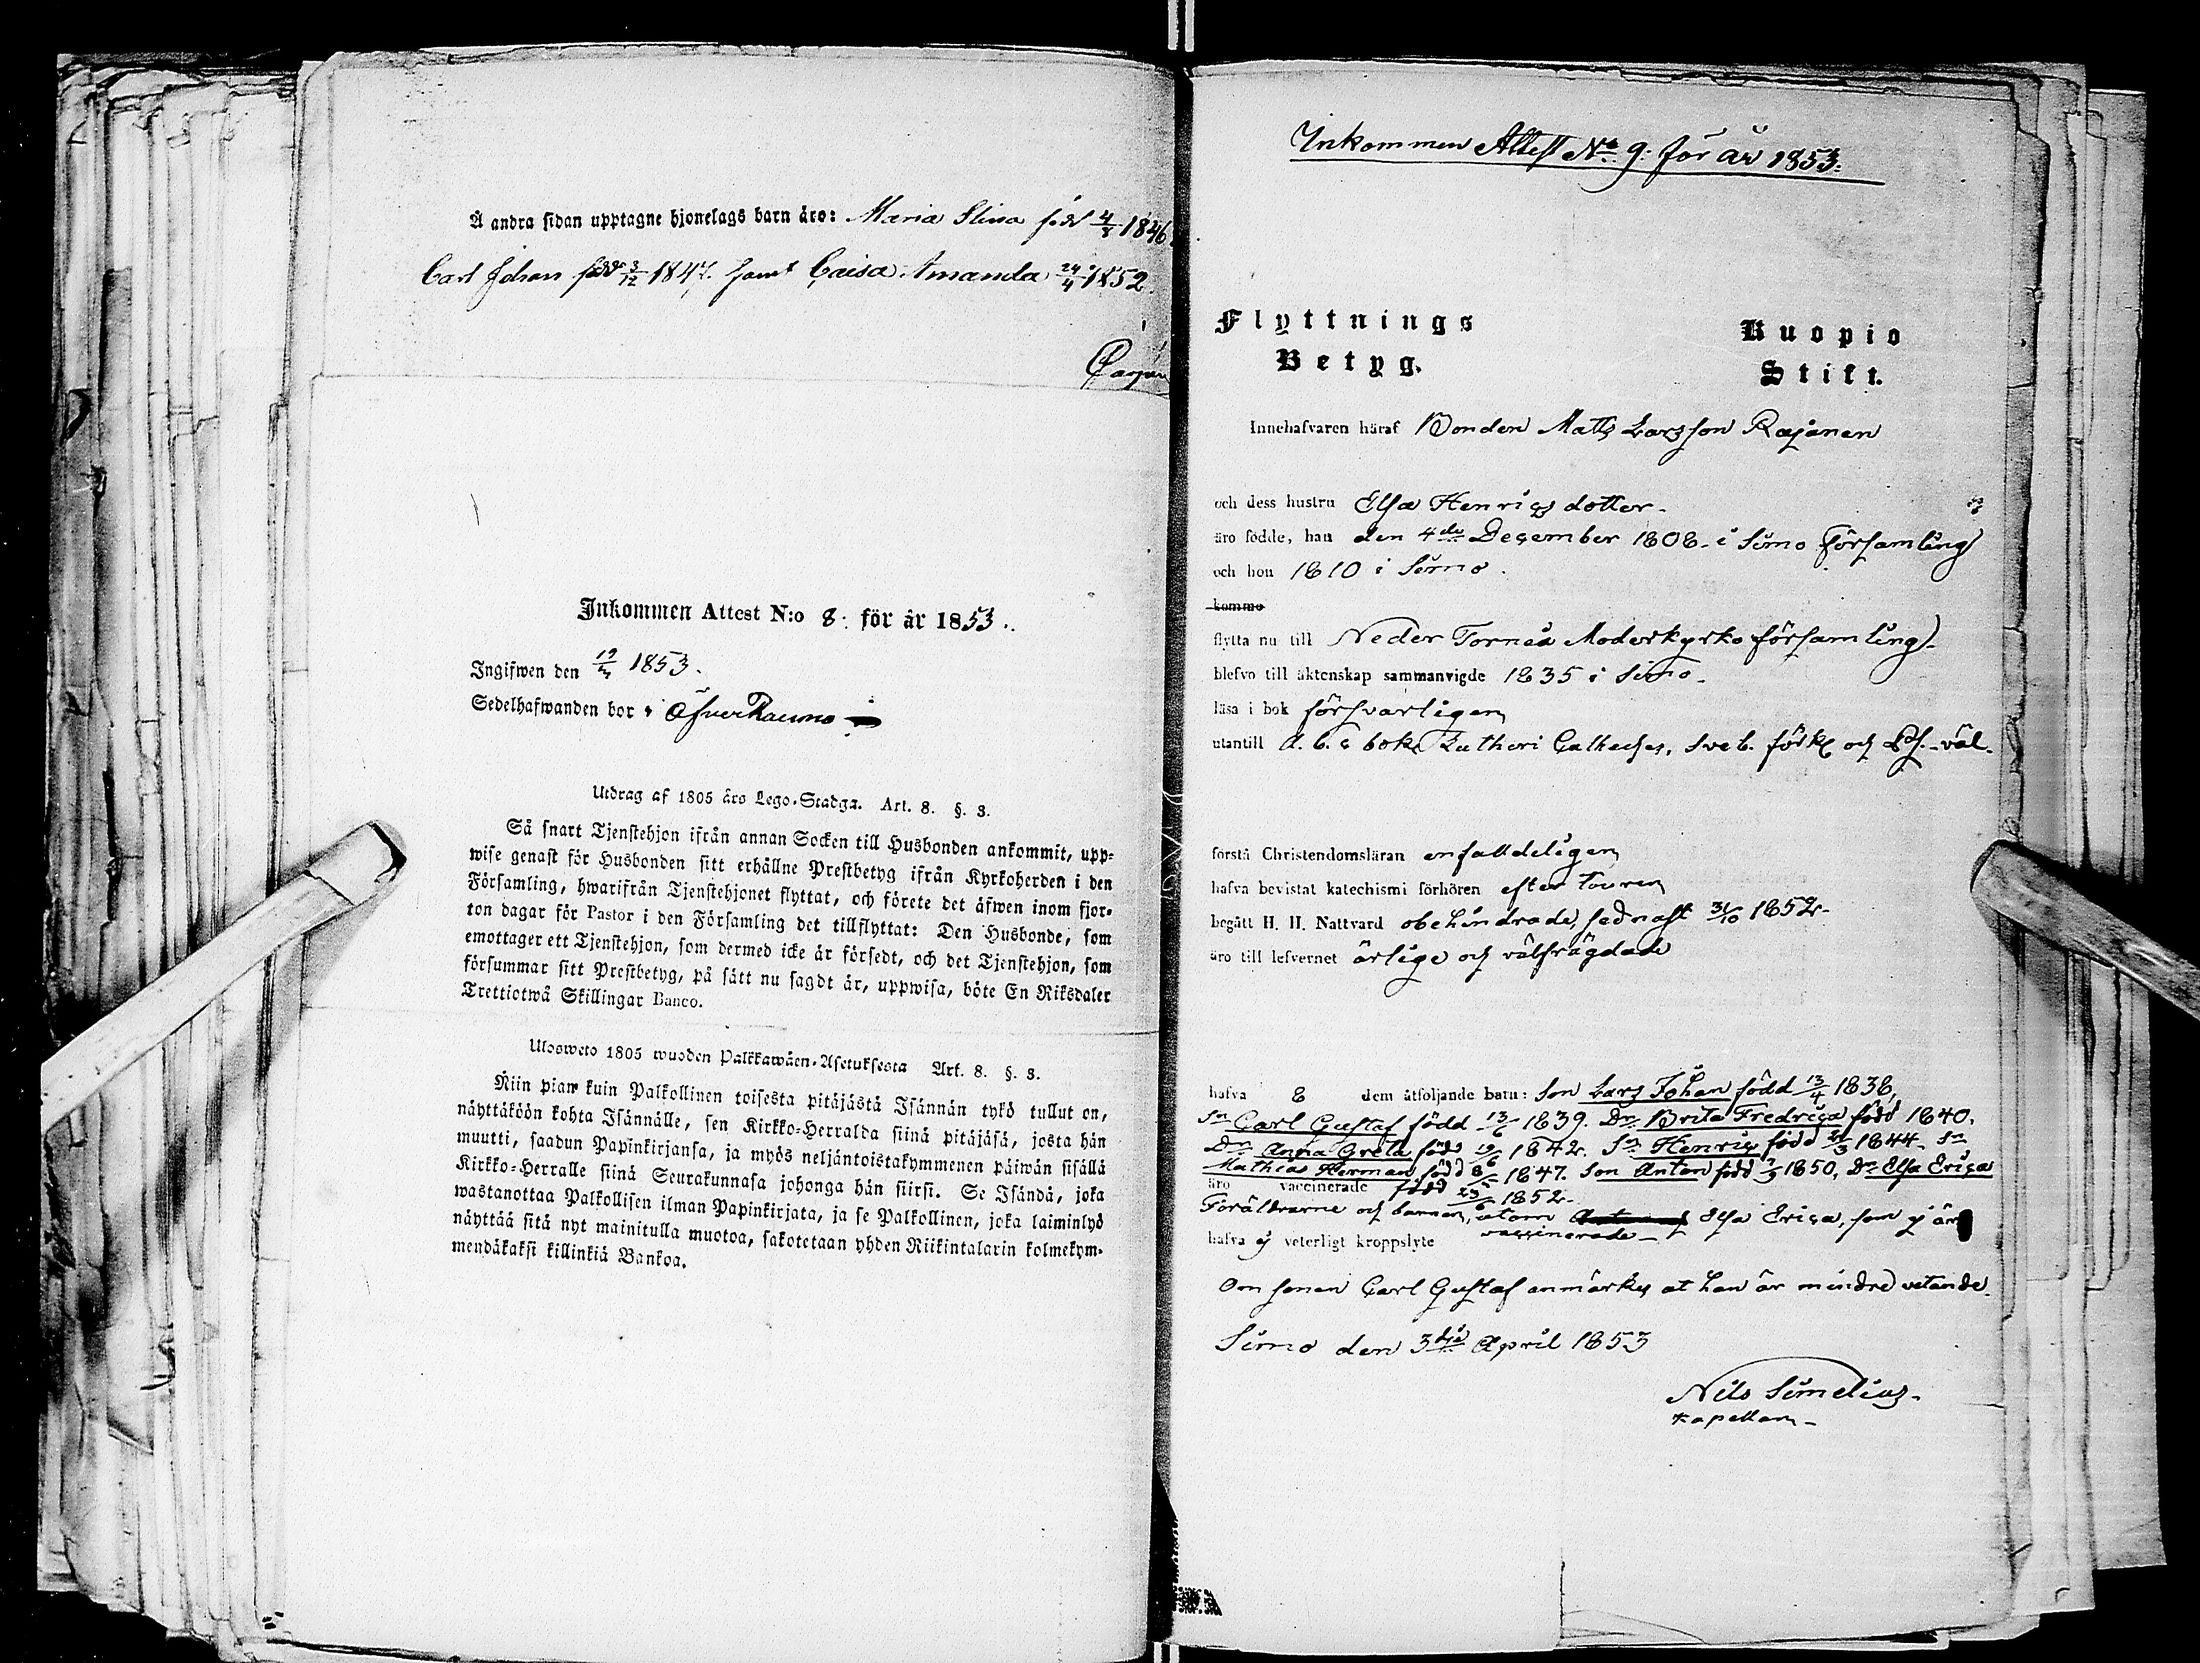 Å andra sidan upptagne hjonelags barn äro: Maria Stina född 4/8 1846.
Carl Johan född 3/12 1847. samt Caisa Amanda 24/4 1852.
Inkommen Attest N:o 8. för år 1853.
Ingifwen den 19/4 1853.
Sedelhafwanden bor i Öfver Raumo
Utdrag af 1805 års Lego-Stadga. Art. 8. §. 3.
Så snart Tjenstehjon ifrån annan Socken till Husbonden ankommit, upp-
wise genast för Husbonden sitt erhållne Prestbetyg ifrån Kyrkoherden i den
Församling, hwarifrån Tjenstehjonet flyttat, och förete det äfwen inom fjor-
ton dagar för Pastor i den Församling det tillflyttat: Den Husbonde, som
emottager ett Tjenstehjon, som dermed icke är försedt, och det Tjenstehjon, som
försummar sitt Prestbetyg, på sätt nu sagdt är, uppwisa, böte En Riksdaler
Trettiotwå Skillingar Banco.
Ulosweto 1805 wuoden Palkkawäen-Asetuksesta Art. 8. §. 3.
Niin pian kuin Palkollinen toisesta pitäjästä Isännän tykö tullut on,
näyttäköön kohta Isännälle, sen Kirkko-Herralda siinä pitäjäsä, josta hän
muutti, saadun Papinkirjansa, ja myös neljäntoistakymmenen päiwän sisällä
Kirkko-Herralle siinä Seurakunnasa johonga hän siirsi. Se Isändä, joka
wastanottaa Palkollisen ilman Papinkirjata, ja se Palkollinen, joka laiminlyö
näyttää sitä nyt mainitulla muotoa, sakotetaan yhden Riikintalarin kolmekym-
mendäkaksi killinkiä Bankoa.
Inkommen Attest No 9: för år 1853.
Flyttnings Kuopio
Betyg. Stift.
Innehafvaren häraf Bonden Matts Larsson Rajanen
och dess hustru Elsa Henricsdotter.
äro födde, han den 4de December 1808. i Simo Församling
och hon 1810 i Simo.
kommo
flytta nu till Neder Torneå Moderkyrko församling.
blefvo till äktenskap sammanvigde 1835 i Simo.
läsa i bok försvarligen
utantill A. b. c bok, Lutheri Catheches, Sveb. förkl och Ps. väl.
förstå Christendomsläran enfalldeligen
hafva bevistat katechismi förhören efter touren
begått H. H. Nattvard obehindrade, sednast 31/10 1852.
äro till lefvernet ärlige och välfrägdade
hafva 8 dem åtföljande barn: Son Lars Johan född 13/4 1838,
Sn Carl Gustaf född 13/6 1839. Dr. Brita Fredrica född 1840.
Dr. Anna Greta född 19/6 1842. Sn Henric född 21/3 1844. Sn
Mathias Herman född 8/5 1847. Son Anton född 7/3 1850, Dr Elsa Erica
äro vaccinerade född 23/6 1852.
Föräldrarne och barnen, utom Elsa Erica, som ej är
vaccinerade
hafva ej veterligt kroppslyte
Om sonen Carl Gustaf anmärkes at han är mindre vetande.
Simo den 3dje April 1853
Nils Simelius.
Kapellan